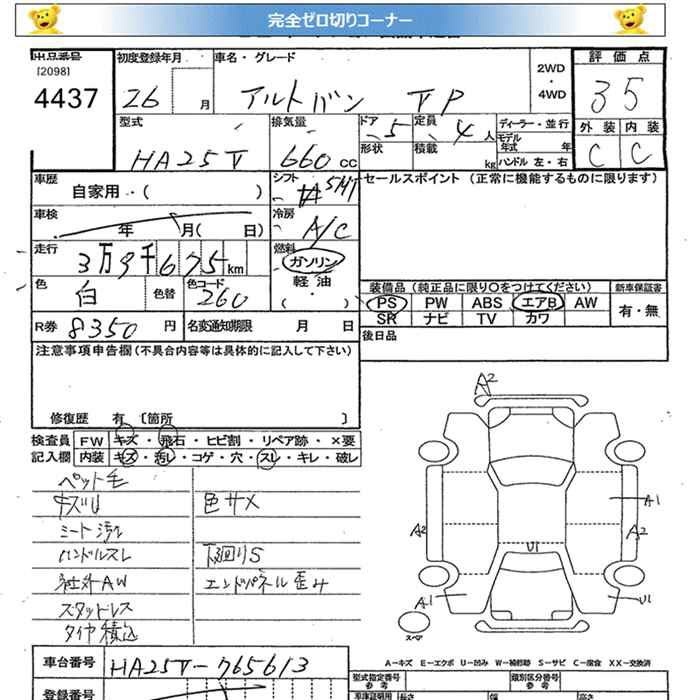 完全ゼロ切りコーナー
出品番号
[2098]
4437
初度登録年月
26 月
車名・グレード
アルトバン VP
2WD
・
4WD
評価点
3 5
外装 内装
C C
型式
HA25V
排気量
660 CC
ドア 5
定員 4 人
形状
積載 kg
ディーラー・並行
モデル年式 年
ハンドル 左・右
車歴
自家用・( )
シフト
5MT
セールスポイント (正常に機能するものに限ります)
車検
年 月( 日)
冷房
A/C
走行
3万9千675km
燃料
ガソリン
軽油
・
( )
色
白
色替
色コード
26U
装備品 (純正品に限り○をつけてください)
新車保証書
PS PW ABS エアB AW
SR ナビ TV カワ
有・無
R券 8350 円
名変通知期限 月 日
後日品
注意事項申告欄(不具合内容等は具体的に記入して下さい)
修復歴 有 〔箇所 〕
検査員
記入欄
FW キズ・飛石・ヒビ割・リペア跡・×要
内装 キズ・汚レ・コゲ・穴・スレ・キレ・破レ
ペット毛
キズU 色サメ
シート汚レ
ハンドルスレ 下廻りS
社外AW エンドパネル歪み
スタットレス
タイヤ積込
A2
A1
A2
A2
U1
A1
U1
スペア
A-キズ E-エクボ U-凹み W-補修跡 S-サビ C-腐食 XX-交換済
車台番号 HA25V-765613
登録番号
型式指定番号
参考
類別区分番号
参考
長さ 幅 高さ